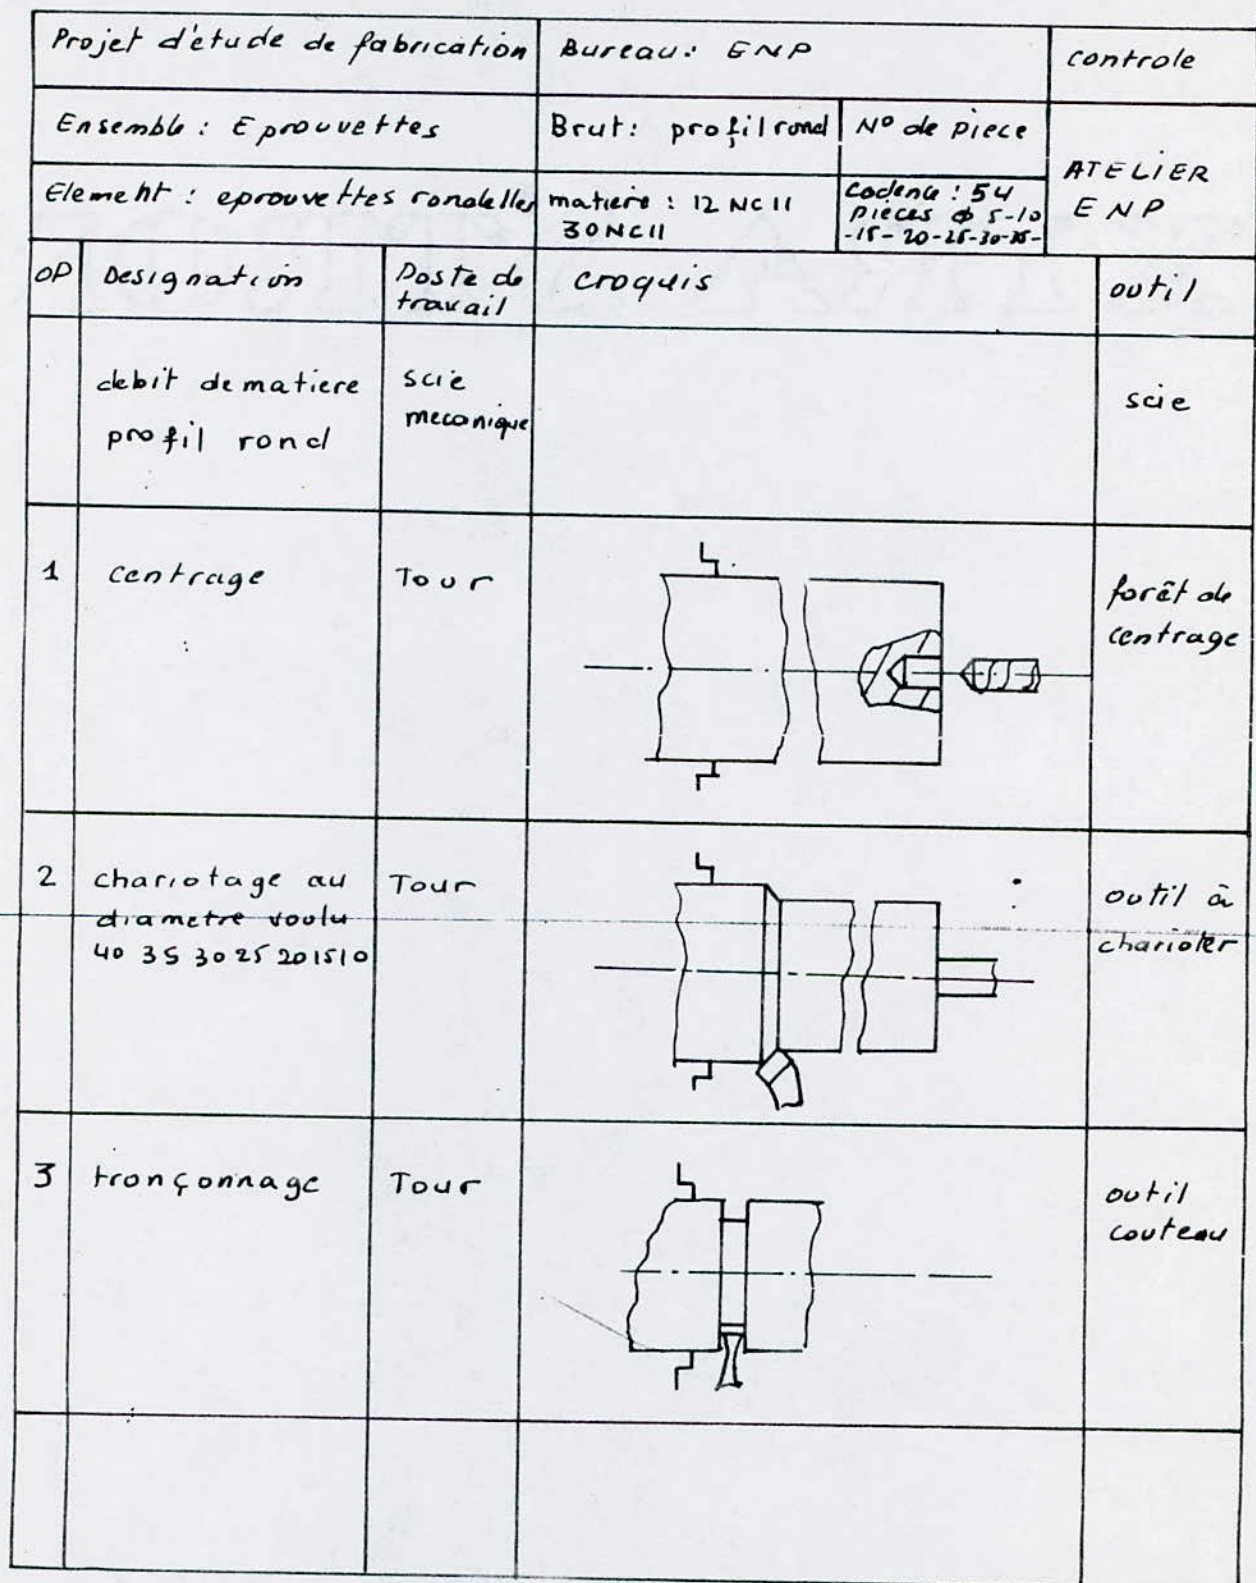 Projet d'étude de fabrication
Bureau: ENP
controle
Ensemble : Eprouvettes
Brut: profil rond
N° de piece
ATELIER
ENP
Element : eprouvettes rondelles
matiere : 12 NC 11
30NC11
Cadence : 54
pieces ϕ 5-10
-15-20-25-30-35-
OP
Designation
Poste de
travail
croquis
outil
debit de matiere
profil rond
scie
mecanique
scie
1
centrage
Tour
forêt de
centrage
2
chariotage au
diametre voulu
40 35 30 25 20 15 10
Tour
outil à
charioter
3
tronçonnage
Tour
outil
couteau